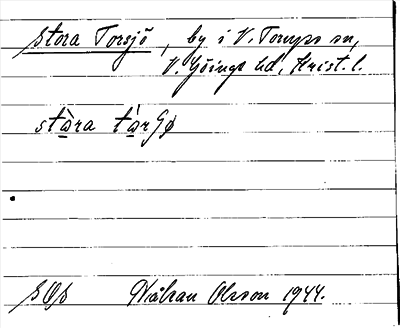 Stora Torsjö, by i V. Torups sn,
V. Göinge hd, Krist. l.
stàra tárgø
SOS Håkan Olsson 1944.